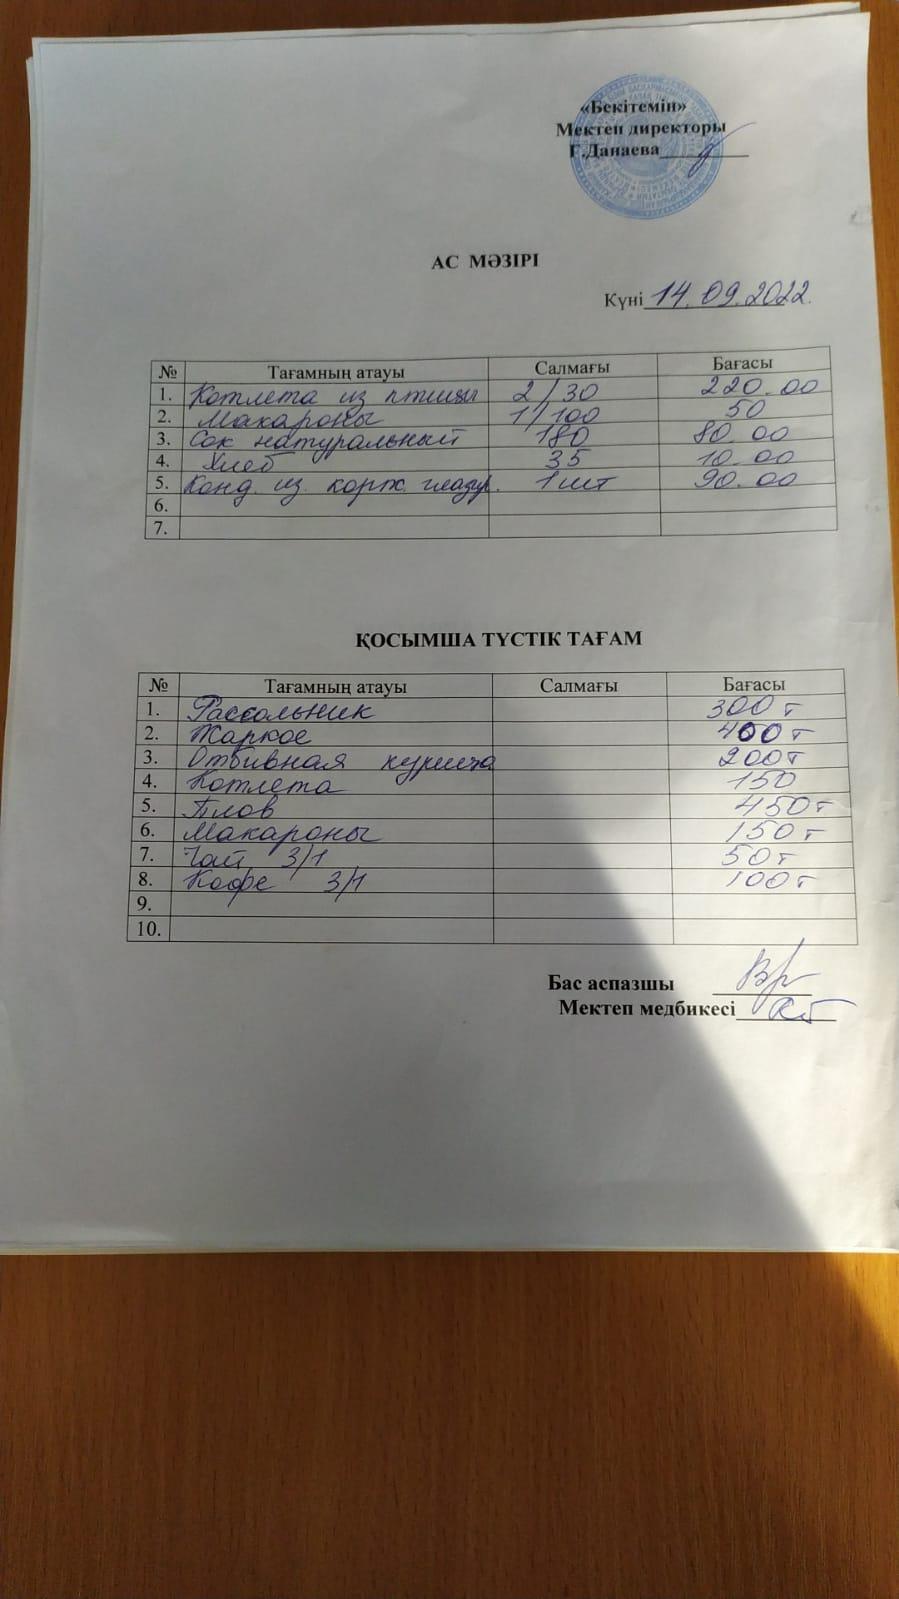 «Бекітемін»
Мектеп директоры
Г.Данаева
АС МӘЗІРІ
Күні 14.09.2022.
№ Тағамның атауы Салмағы Бағасы
1. Котлета из птицы 2/30 220.00
2. Макароны 1/100 50
3. Сок натуральный 180 80.00
4. Хлеб 35 10.00
5. Конд. из. корж. глазур. 1 шт 90.00
6.
7.
ҚОСЫМША ТҮСТІК ТАҒАМ
№ Тағамның атауы Салмағы Бағасы
1. Рассольник 300 т
2. Жаркое 400 т
3. Отбивная курица 200 т
4. Котлета 150
5. Плов 450 т
6. Макароны 150 т
7. Чай 3/1 50 т
8. Кофе 3/1 100 т
9.
10.
Бас аспазшы
Мектеп медбикесі